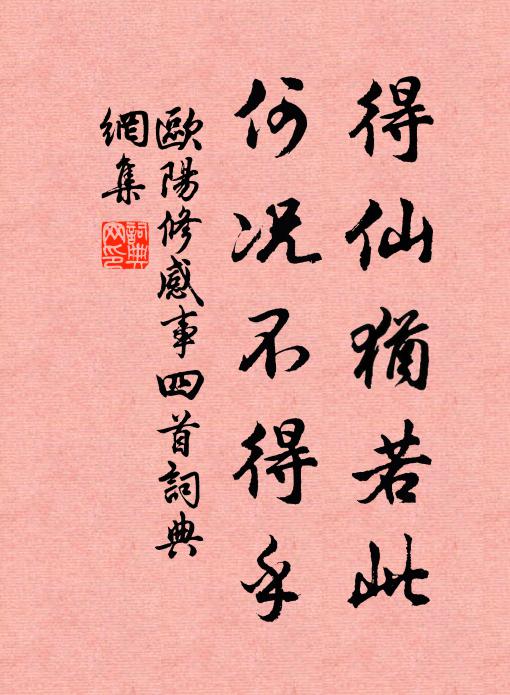 得仙猶若此
何况不得乎
歐陽修感事四首詞典
網集
詞典網印